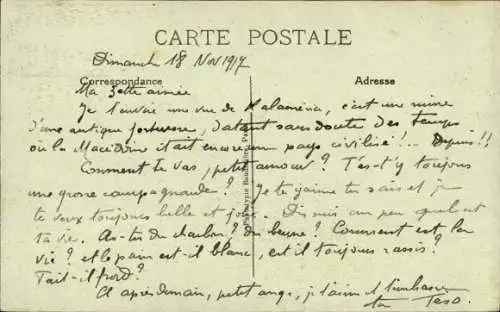 CARTE POSTALE
Dimanche 18 Nov 1917
Correspondance
Adresse
Ma
Je t'envoie une vue de c'est une ruine
d'une antique forteresse, datant sans doute des temps
où la Macédoine était encore un pays civilisé!.. Depuis!!
Comment te vas, petit amour? T'es-t'y toujours
une grosse campagnarde? Je te j'aime tu sais et je
te veux toujours belle et Dis moi un peu quel est
ta vie. As-tu du charbon? du beurre? Comment est la
vie? et le pain est-il blanc, est-il toujours rassis?
Fait-il froid?
A après demain, petit ange, je t'aime et t'embrasse
ton